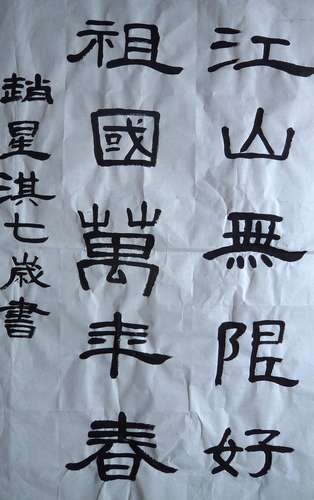 江山無限好
祖國萬年春
趙星淇七歲書